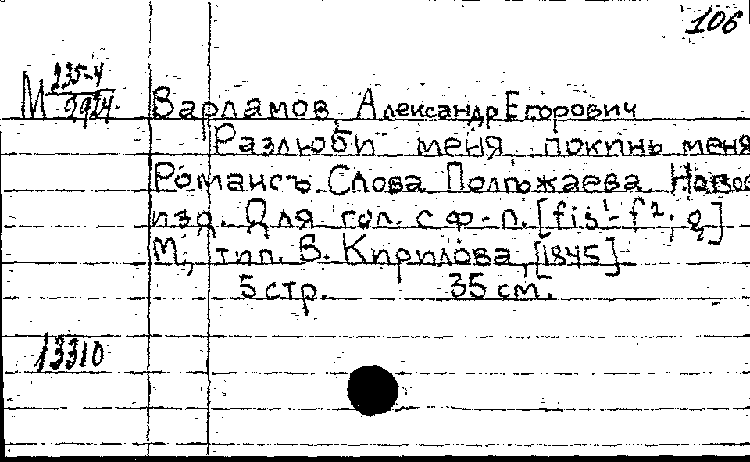 106
М 235-4/2924.
Варламов, Александр Егорович
Разлюби меня, покинь меня
Романсъ. Слова Полѣжаева. Новое
изд. Для гол. с ф-п. [fis¹-f²; g]
М., тип. В. Кирилова, [1845]
5 стр. 35 см.
13310